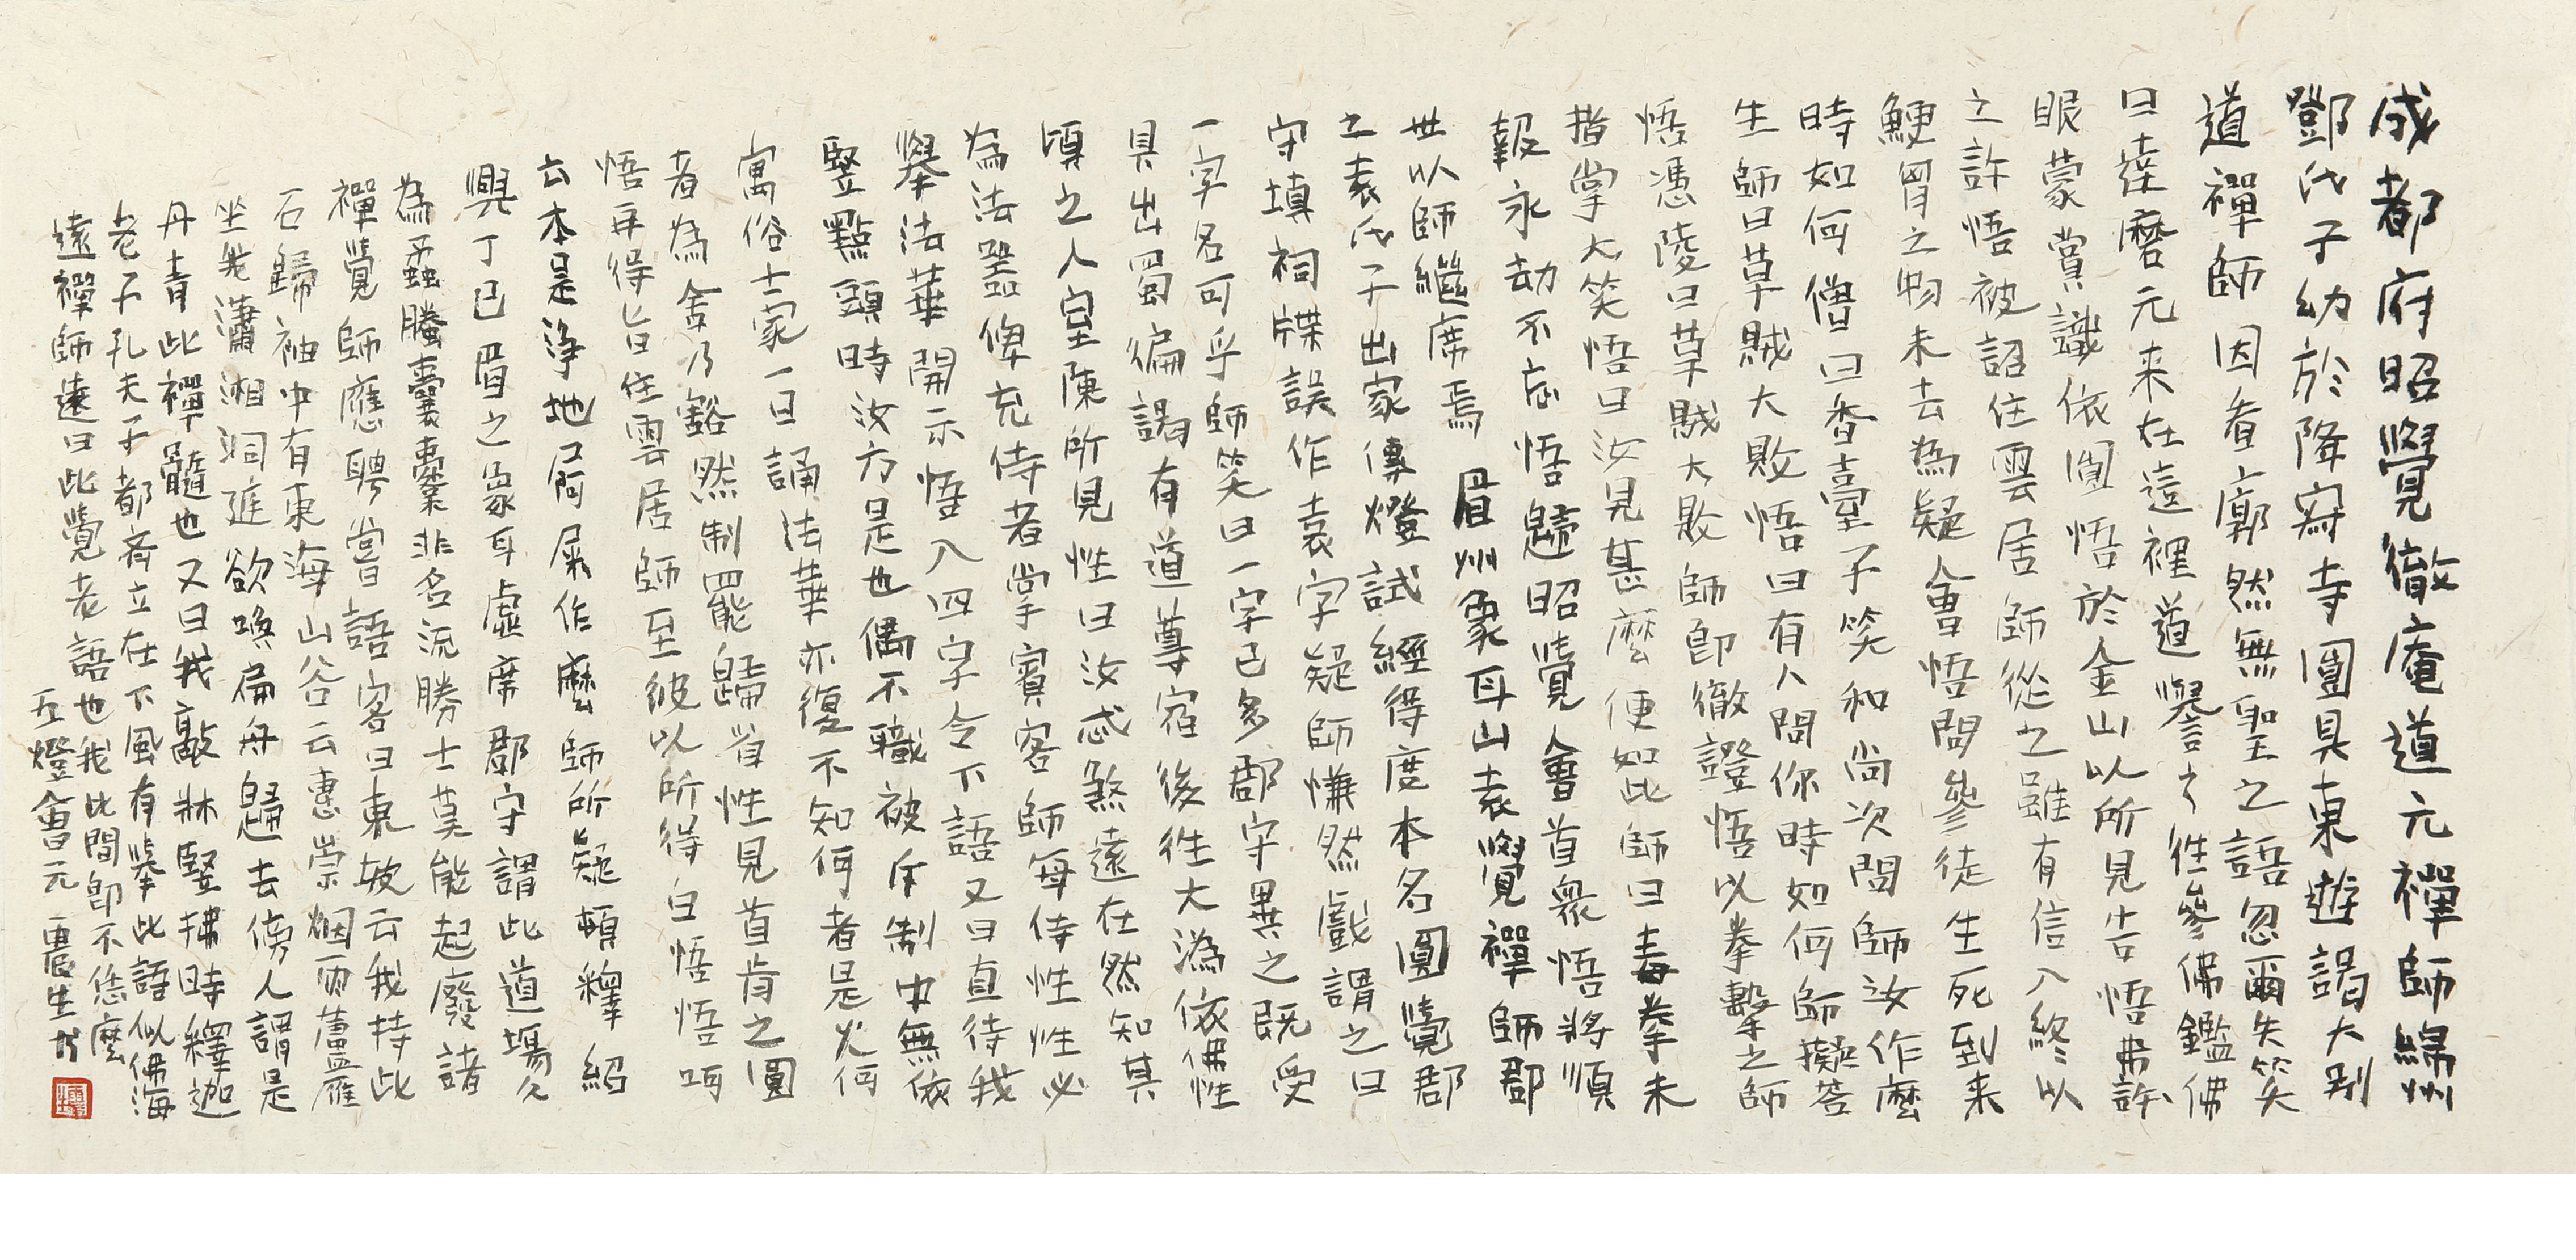 成都府昭覺徹庵道元禪師綿州
鄧氏子幼於降寂寺圓具東遊謁大別
道禪師因看廓然無聖之語忽爾失笑
曰達磨元来在這裡道譽之往參佛鑑佛
眼蒙賞識依圓悟於金山以所見告悟弗許
之許悟被詔住雲居師從之雖有信入終以
鯁胷之物未去為疑會悟問參徒生死到来
時如何僧曰香臺子笑和尚次問師汝作麼
生師曰草賊大敗悟曰有人問你時如何師擬荅
悟憑陵曰草賊大敗師即徹證悟以拳擊之師
指掌大笑悟曰汝見甚麼便如此師曰毒拳未
報永劫不忘悟歸昭覺命首衆悟將順
世以師繼席焉 眉州象耳山袁覺禪師郡
之袁氏子出家傳燈試經得度本名圓覺郡
守填祠牒誤作袁字疑師慊然戲謂之曰
一字名可乎師笑曰一字已多郡守異之既受
具出蜀徧謁有道尊宿後往大溈依佛性
頃之入室陳所見性曰汝忒煞遠在然知其
為法器俾充侍者掌賓客師每侍性性必
舉法華開示悟入四字令下語又曰直待我
竪點頭時汝方是也偶不職被斥制中無依
寓俗士家一日誦法華亦復不知何者是火何
者為舍乃豁然制罷歸省性見首肯之圓
悟再得旨住雲居師至彼以所得白悟悟呵
云本是淨地屙屎作麼師所疑頓釋紹
興丁巳眉之象耳虛席郡守謂此道場久
為蟊螣囊橐非名流勝士莫能起廢諸
禪覺師應聘嘗語客曰東坡云我持此
石歸袖中有東海山谷云惠崇烟雨蘆雁
坐我瀟湘洞庭欲喚扁舟歸去傍人謂是
丹青此禪髓也又曰我敲牀竪拂時釋迦
老子孔夫子都齊立在下風有舉此語似佛海
遠禪師遠曰此覺老語也我此間即不恁麼
五燈會元 農生书